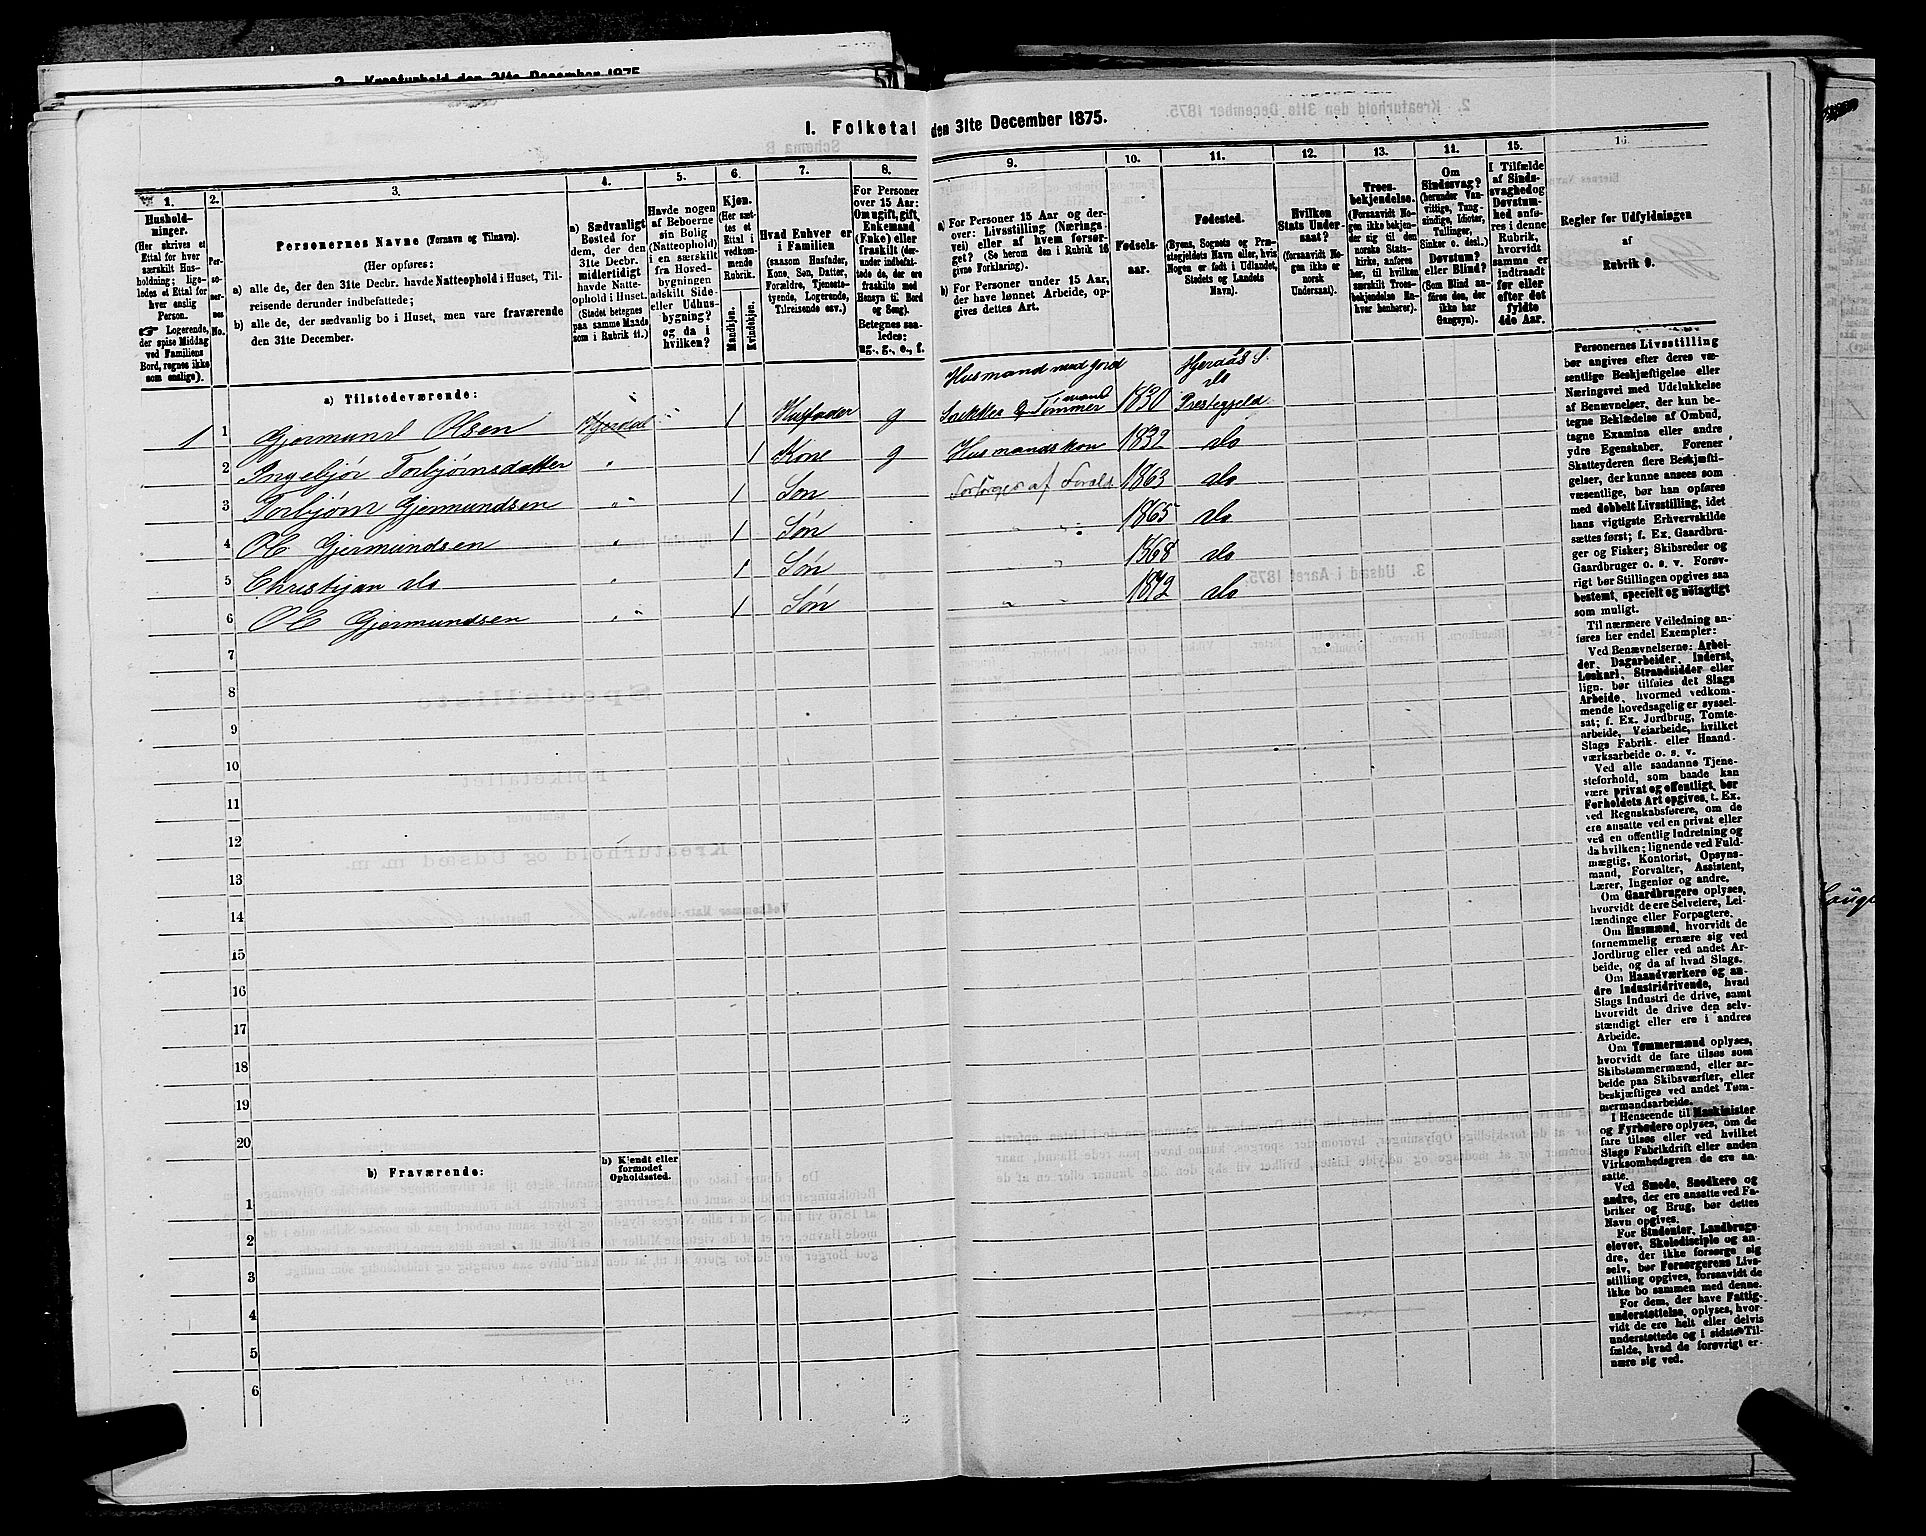 2. Kreaturhold den 31te December 1875
I. Folketal den 31te December 1875.
1.
Hushold-
ninger.
(Her skrives et
Ettal for hver
særskilt Hus-
holdning; lige-
ledes et Ettal for
hver enslig
Person.
☞ Logerende,
der spise Middag
ved Familiens
Bord, regnes ikke
som enslige).
2.
Personernes No.
3.
Personernes Navne (Fornavn og Tilnavn).
(Her opføres:
a) alle de, der den 31te Decbr. havde Natteophold i Huset, Til-
reisende derunder indbefattede;
b) alle de, der sædvanlig bo i Huset, men vare fraværende
den 31te December.
4.
a) Sædvanligt
Bosted for
dem, der den
31te Decbr.
midlertidigt
havde Natte-
ophold i Huset.
(Stedet betegnes
paa samme Maade
som i Rubrik 11.)
5.
Havde nogen
af Beboerne
sin Bolig
(Natteophold)
i en særskilt
fra Hoved-
bygningen
adskilt Side-
eller Udhus-
bygning?
og da i
hvilken?
6.
Kjøn.
(Her sæt-
tes et
Ettal i
vedkom-
mende
Rubrik.
Mandkjøn.
Kvindekjøn.
7.
Hvad Enhver er
i Familien
(saasom Husfader,
Kone, Søn, Datter,
Forældre, Tjeneste-
tyende, Logerende,
Tilreisende osv.)
8.
For Personer
over 15 Aar:
Om ugift, gift,
Enkemand
(Enke) eller
fraskilt (der-
under indbefat-
tede de, der ere
fraskilte med
Hensyn til Bord
og Seng).
Betegnes saa-
ledes:
ug., g., e., f.
9.
a) For Personer 15 Aar og der-
over: Livsstilling (Nærings-
vei) eller af hvem forsør-
get? (Se herom den i Rubrik 16
givne Forklaring).
b) For Personer under 15 Aar,
der have lønnet Arbeide, op-
gives dettes Art.
10.
Fødsels-
aar.
11.
Fødested.
(Byens, Sognets og Præ-
stegjeldets Navn eller, hvis
Nogen er født i Udlandet,
Stedets og Landets
Navn).
12.
Hvilken
Stats Under-
saat?
(forsaavidt No-
gen ikke er
norsk
Undersaat).
13.
Troes-
bekjendelse.
(Forsaavidt No-
gen ikke bekjen-
der sig til den
norske Stats-
kirke, anføres
her, til hvilken
særskilt Troes-
bekjendelse En-
hver henhører).
14.
Om
Sindssvag?
(herunder Van-
vittige, Tung-
sindige, Idioter,
Sinker o. desl.)
Døvstum?
eller Blind?
(Som Blind an-
føres den, der
ikke har
Gangsyn).
15.
I Tilfælde
af Sinds-
svaghed og
Døvstum-
hed anfø-
res i denne
Rubrik,
hvorvidt
samme er
indtraadt
før eller
efter det
fyldte
4de Aar.
16.
Regler for Udfyldningen
af
Rubrik 9.
a) Tilstedeværende:
Husmand med Jord Hjerdals S.
do
1 1 Gjermund Olsen Hjerdal 1 Husfader g Snekker & Tømmermand 1830 Prestegjeld
2 Ingebjør Torbjørnsdatter 1 Kone g Husmandskon 1832 do
3 Torbjørn Gjermundsen 1 Søn Forsørges af Foræld 1863 do
4 Ol Gjermundsen 1 Søn 1865 do
5 Christijan do 1 Søn 1868 do
6 Ol Gjermundsen 1 Søn 1872 do
7
8
9
10
11
12
13
14
15
16
17
18
19
20
b) Fraværende:
b) Kjendt eller
formodet
Opholdssted.
1
2
3
4
5
6
Personernes Livsstilling
bør angives efter deres væ-
sentlige Beskjæftigelse eller
Næringsvei med Udelukkelse
af Benævnelser, der kun be-
tegne Beklædelse af Ombud,
tagne Examina eller andre
ydre Egenskaber. Forener
Skatteyderen flere Beskjæfti-
gelser, der kunne ansees som
væsentlige, bør han opføres
med dobbelt Livsstilling, idet
hans vigtigste Erhvervskilde
sættes først; f. Ex. Gaardbru-
ger og Fisker; Skibsreder og
Gaardbruger o. s. v. Forøv-
rigt bør Stillingen opgives saa
bestemt, specielt og nøiagtigt
som muligt.
Til nærmere Veiledning an-
føres her endel Exempler:
Ved Benævnelserne: Arbei-
der, Dagarbeider, Inderst,
Løskarl, Strandsidder eller
lign. bør tilføies det Slags
Arbeide, hvormed vedkom-
mende hovedsagelig er syssel-
sat; f. Ex. Jordbrug, Tomte-
arbeide, Veiarbeide, hvilket
Slags Fabrik- eller Haand-
værksarbeide o. s. v.
Ved alle saadanne Tjene-
steforhold, som baade kan
være privat og offentligt, bør
Forholdets Art opgives, t. Ex.
ved Regnskabsførere, om de
ere ansatte ved en privat eller
ved en offentlig Indretning og
da hvilken; lignende ved Fuld-
mægtig, Kontorist, Opsyns-
mand, Forvalter, Assistent,
Lærer, Ingeniør og andre.
Om Gaardbrugere oplyses,
hvorvidt de ere Selveiere, Lei-
lændinge eller Forpagtere.
Om Husmænd, hvorvidt de
fornemmelig ernære sig ved
Jordbrug eller ved andet Ar-
beide, og da af hvad Slags.
Om Haandværkere og an-
dre Industridrivende, hvad
Slags Industri de drive, samt
hvorvidt de drive den selv-
stændigt eller ere i andres
Arbeide.
Om Tømmermænd oplyses,
hvorvidt de fare tilsøs som
Skibstømmermænd, eller ar-
beide paa Skibsværfter, eller
beskjæftiges ved andet Tøm-
mermandsarbeide.
I Henseende til Maskinister
og Fyrbødere oplyses, om de
fare tilsøs eller ved hvilket
Slags Fabrikdrift eller anden
Virksomhedsgren de ere an-
satte.
Ved Smede, Snedkere og
andre, der ere ansatte ved Fa-
briker og Brug, bør dettes
Navn opgives.
For Studenter, Landbrugs-
elever, Skoledisciple og an-
dre, der ikke forsørge sig
selv, bør Forsørgerens Livs-
stilling opgives, forsaavidt de
ikke bo sammen med denne.
For dem, der have Fattig-
understøttelse, oplyses, hvor-
vidt de ere helt eller delvis
understøttede og i sidste Til-
fælde, hvad de forøvrigt er-
nære sig ved.